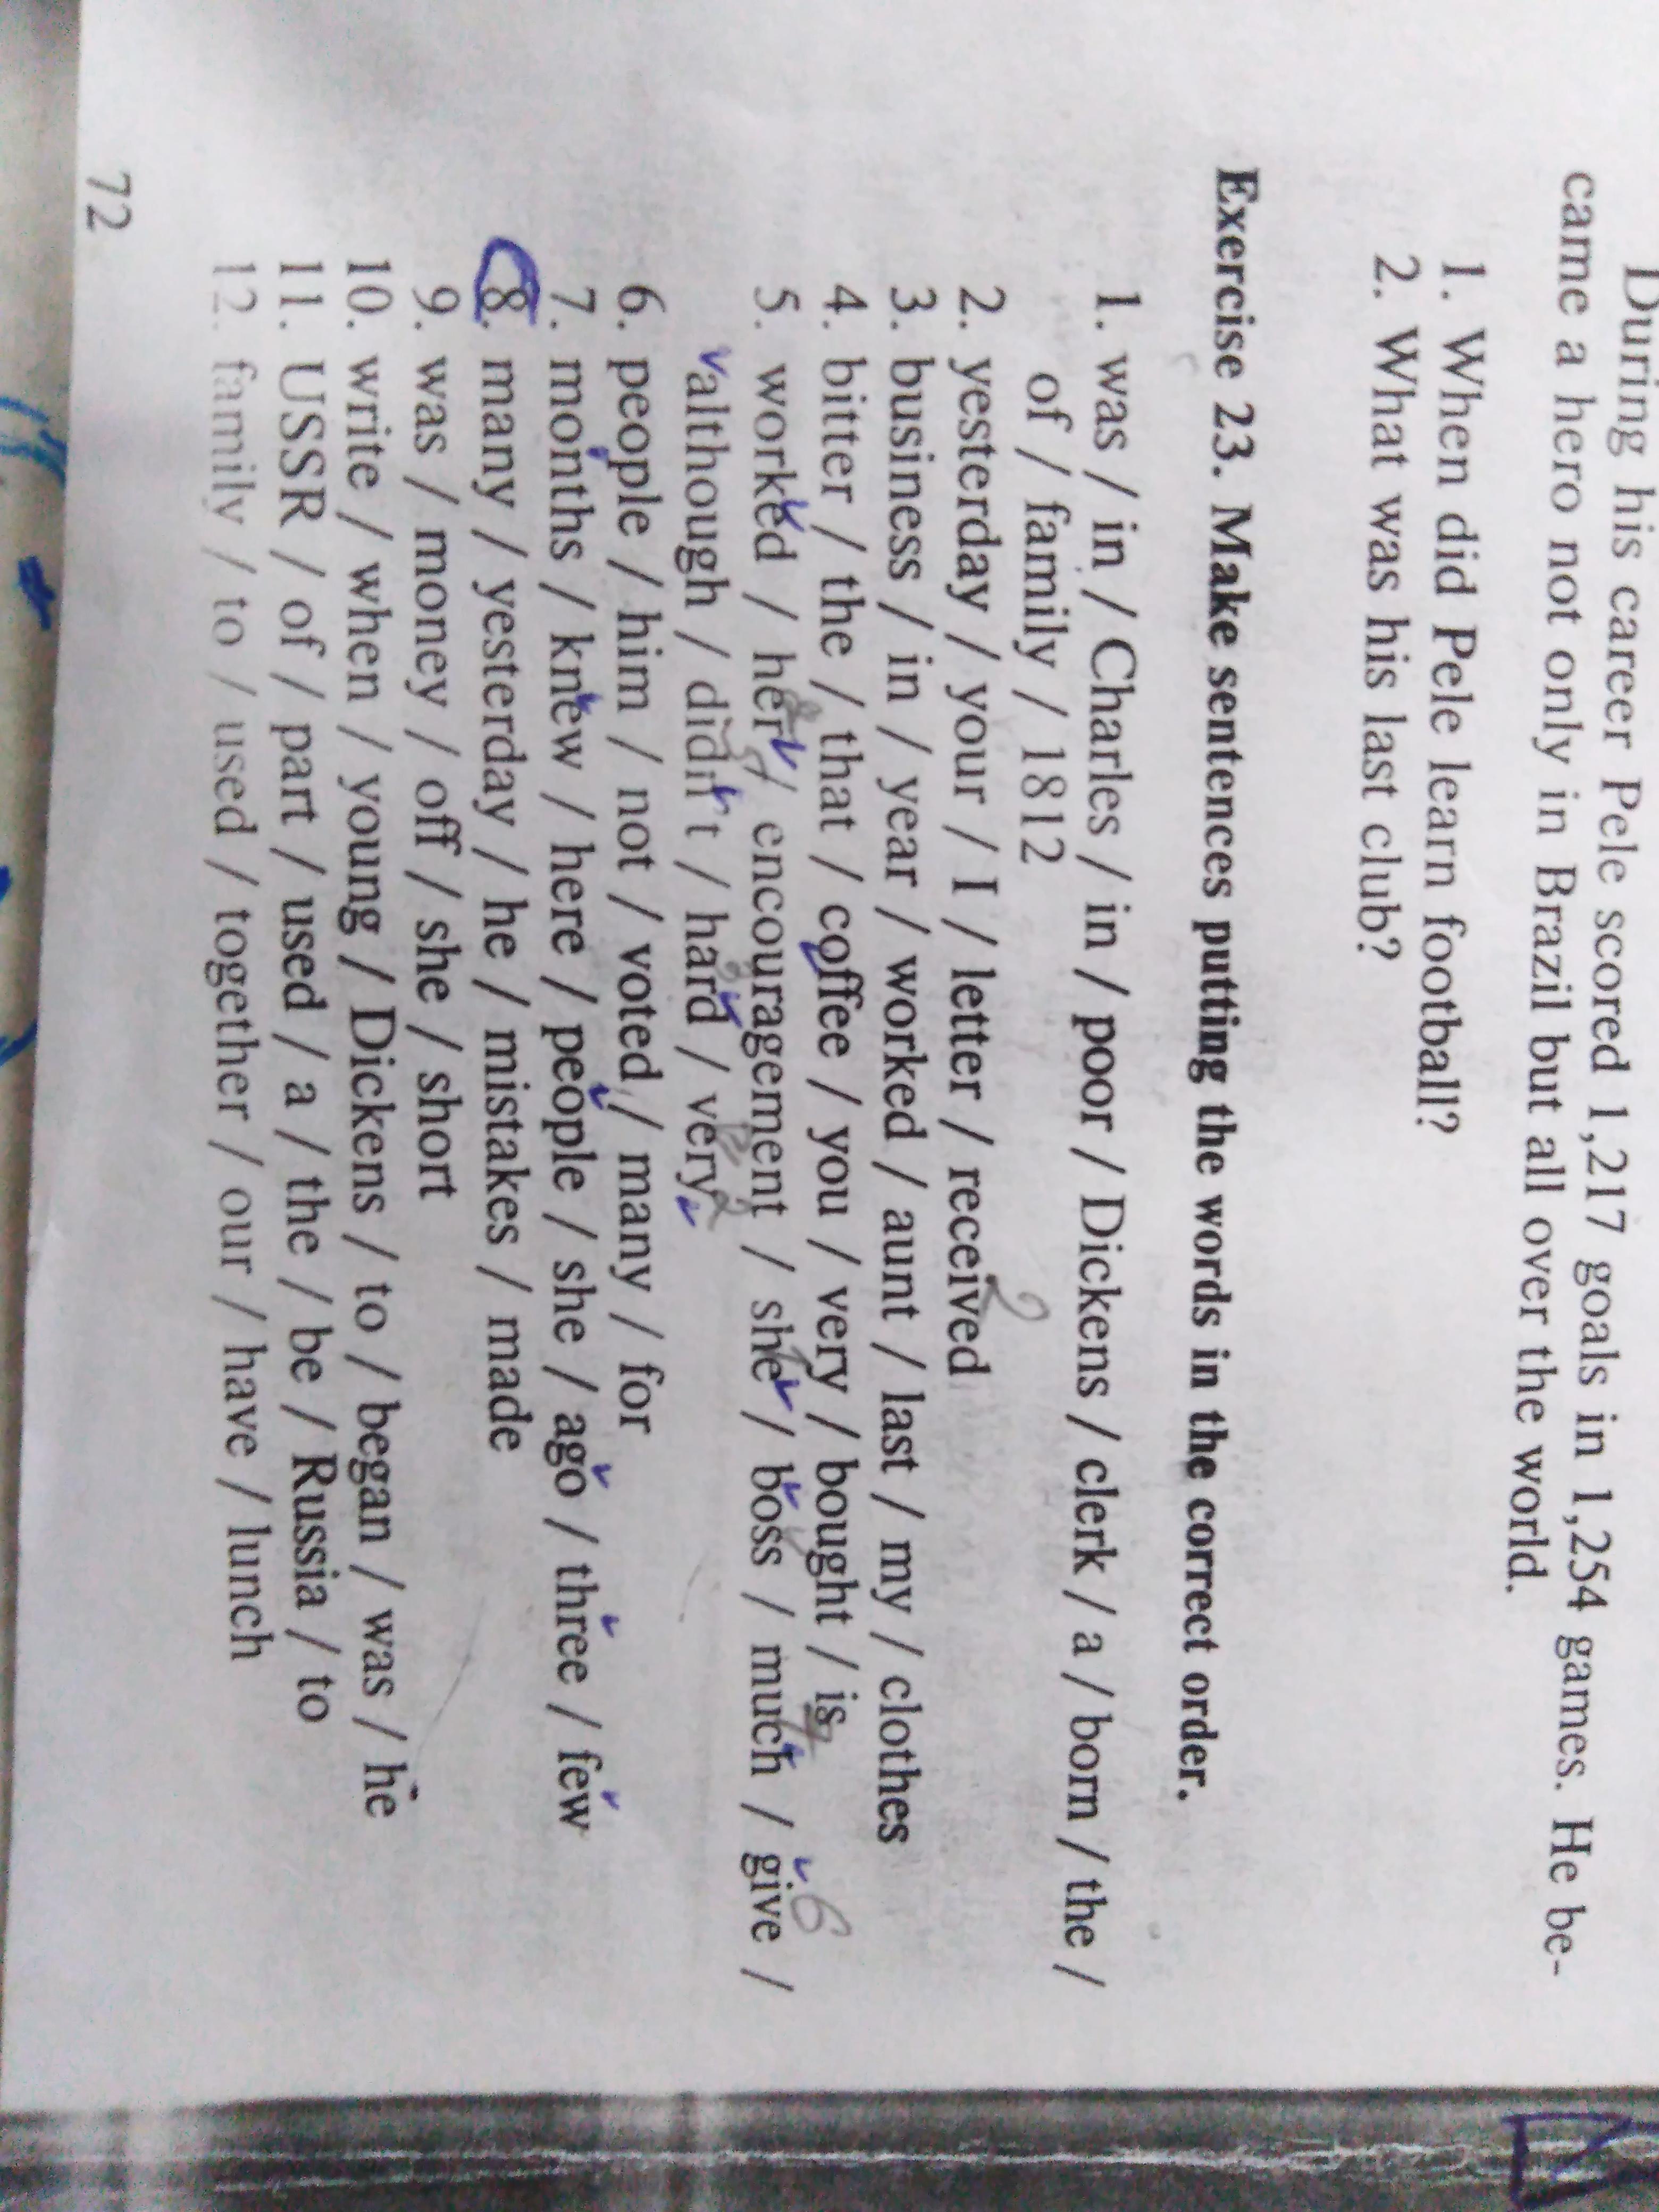 During his career Pele scored 1,217 goals in 1,254 games. He be-
came a hero not only in Brazil but all over the world.
1. When did Pele learn football?
2. What was his last club?
Exercise 23. Make sentences putting the words in the correct order.
1. was / in / Charles / in / poor / Dickens / clerk / a / born / the /
of / family / 1812
2. yesterday / your / I / letter / received
3. business / in / year / worked / aunt / last / my / clothes
4. bitter / the / that / coffee / you / very / bought / is
5. worked / her / encouragement / she / boss / much / give /
although / didn't / hard / very
6. people / him / not / voted / many / for
7. months / knew / here / people / she / ago / three / few
8. many / yesterday / he / mistakes / made
9. was / money / off / she / short
10. write / when / young / Dickens / to / began / was / he
11. USSR / of / part / used / a / the / be / Russia / to
12. family / to / used / together / our / have / lunch
72